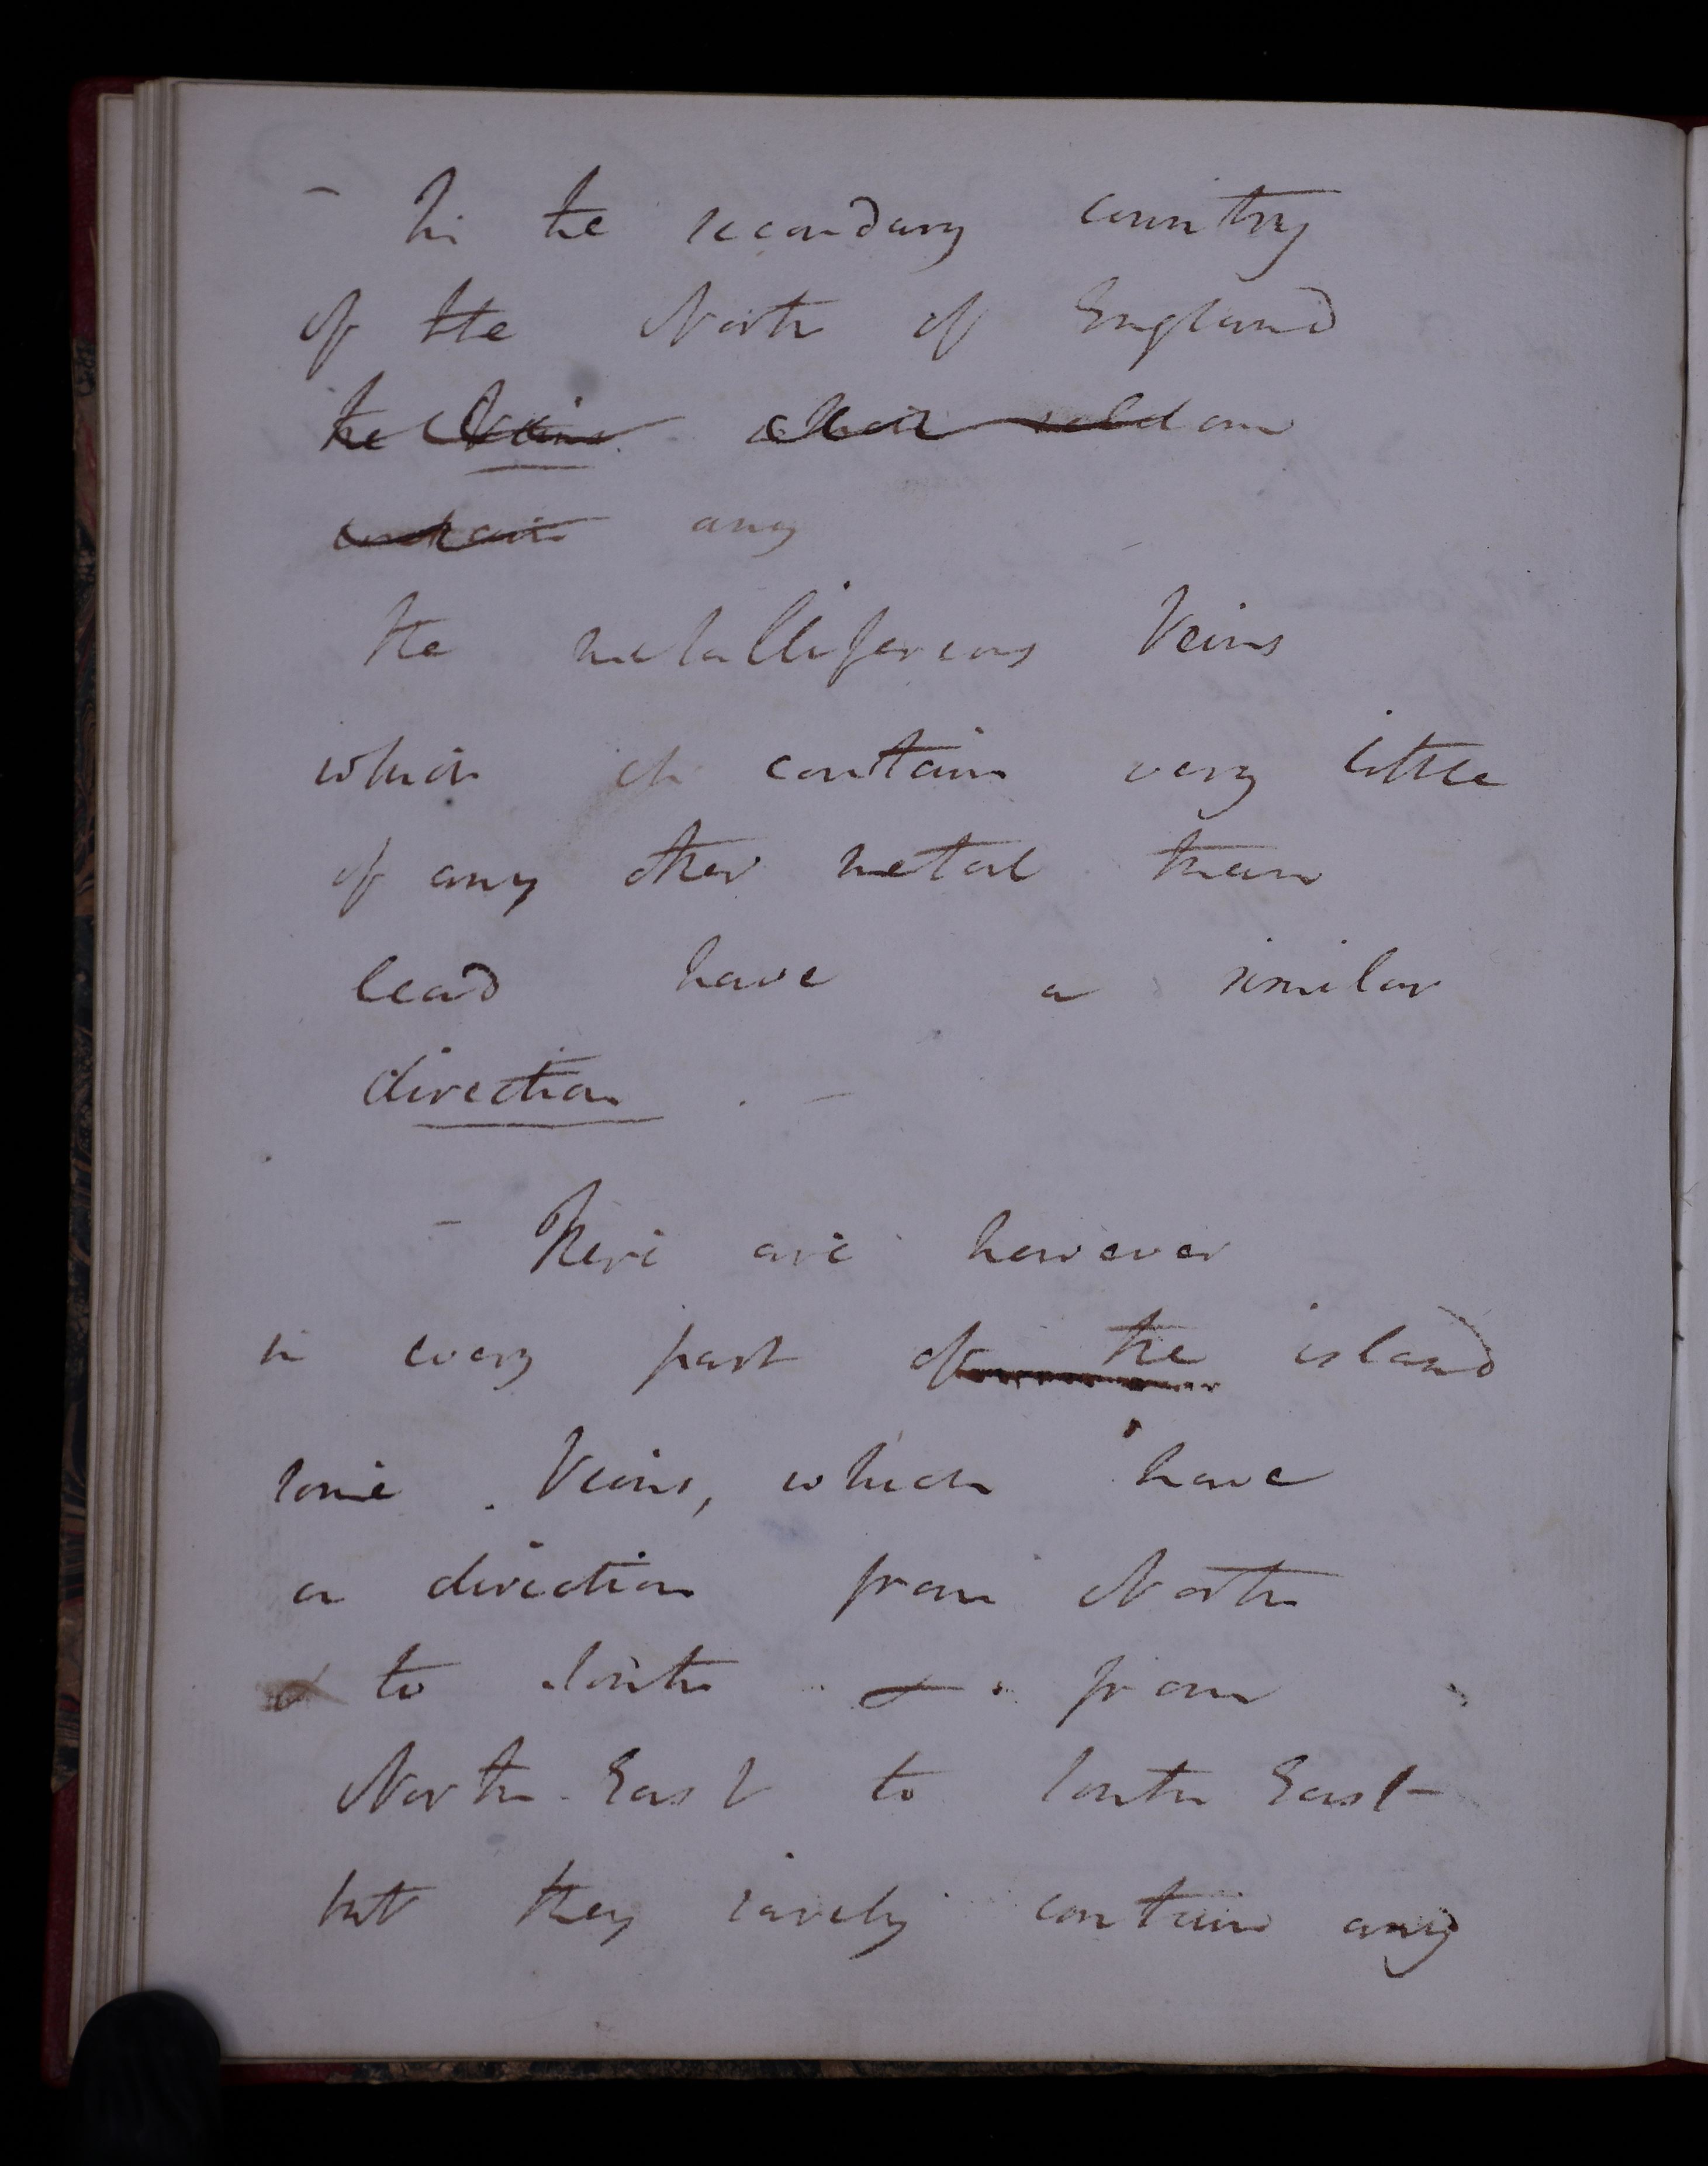 - In the secondary country
of the North of England
the Veins which seldom
contain any
the metalliferous Veins
which ch contain very little
of any other metal than
lead have a similar
direction . -
- There are however
in every part of the island
some Veins, which have
a direction from North
to South & from
North East to South East
but they rarely contain any